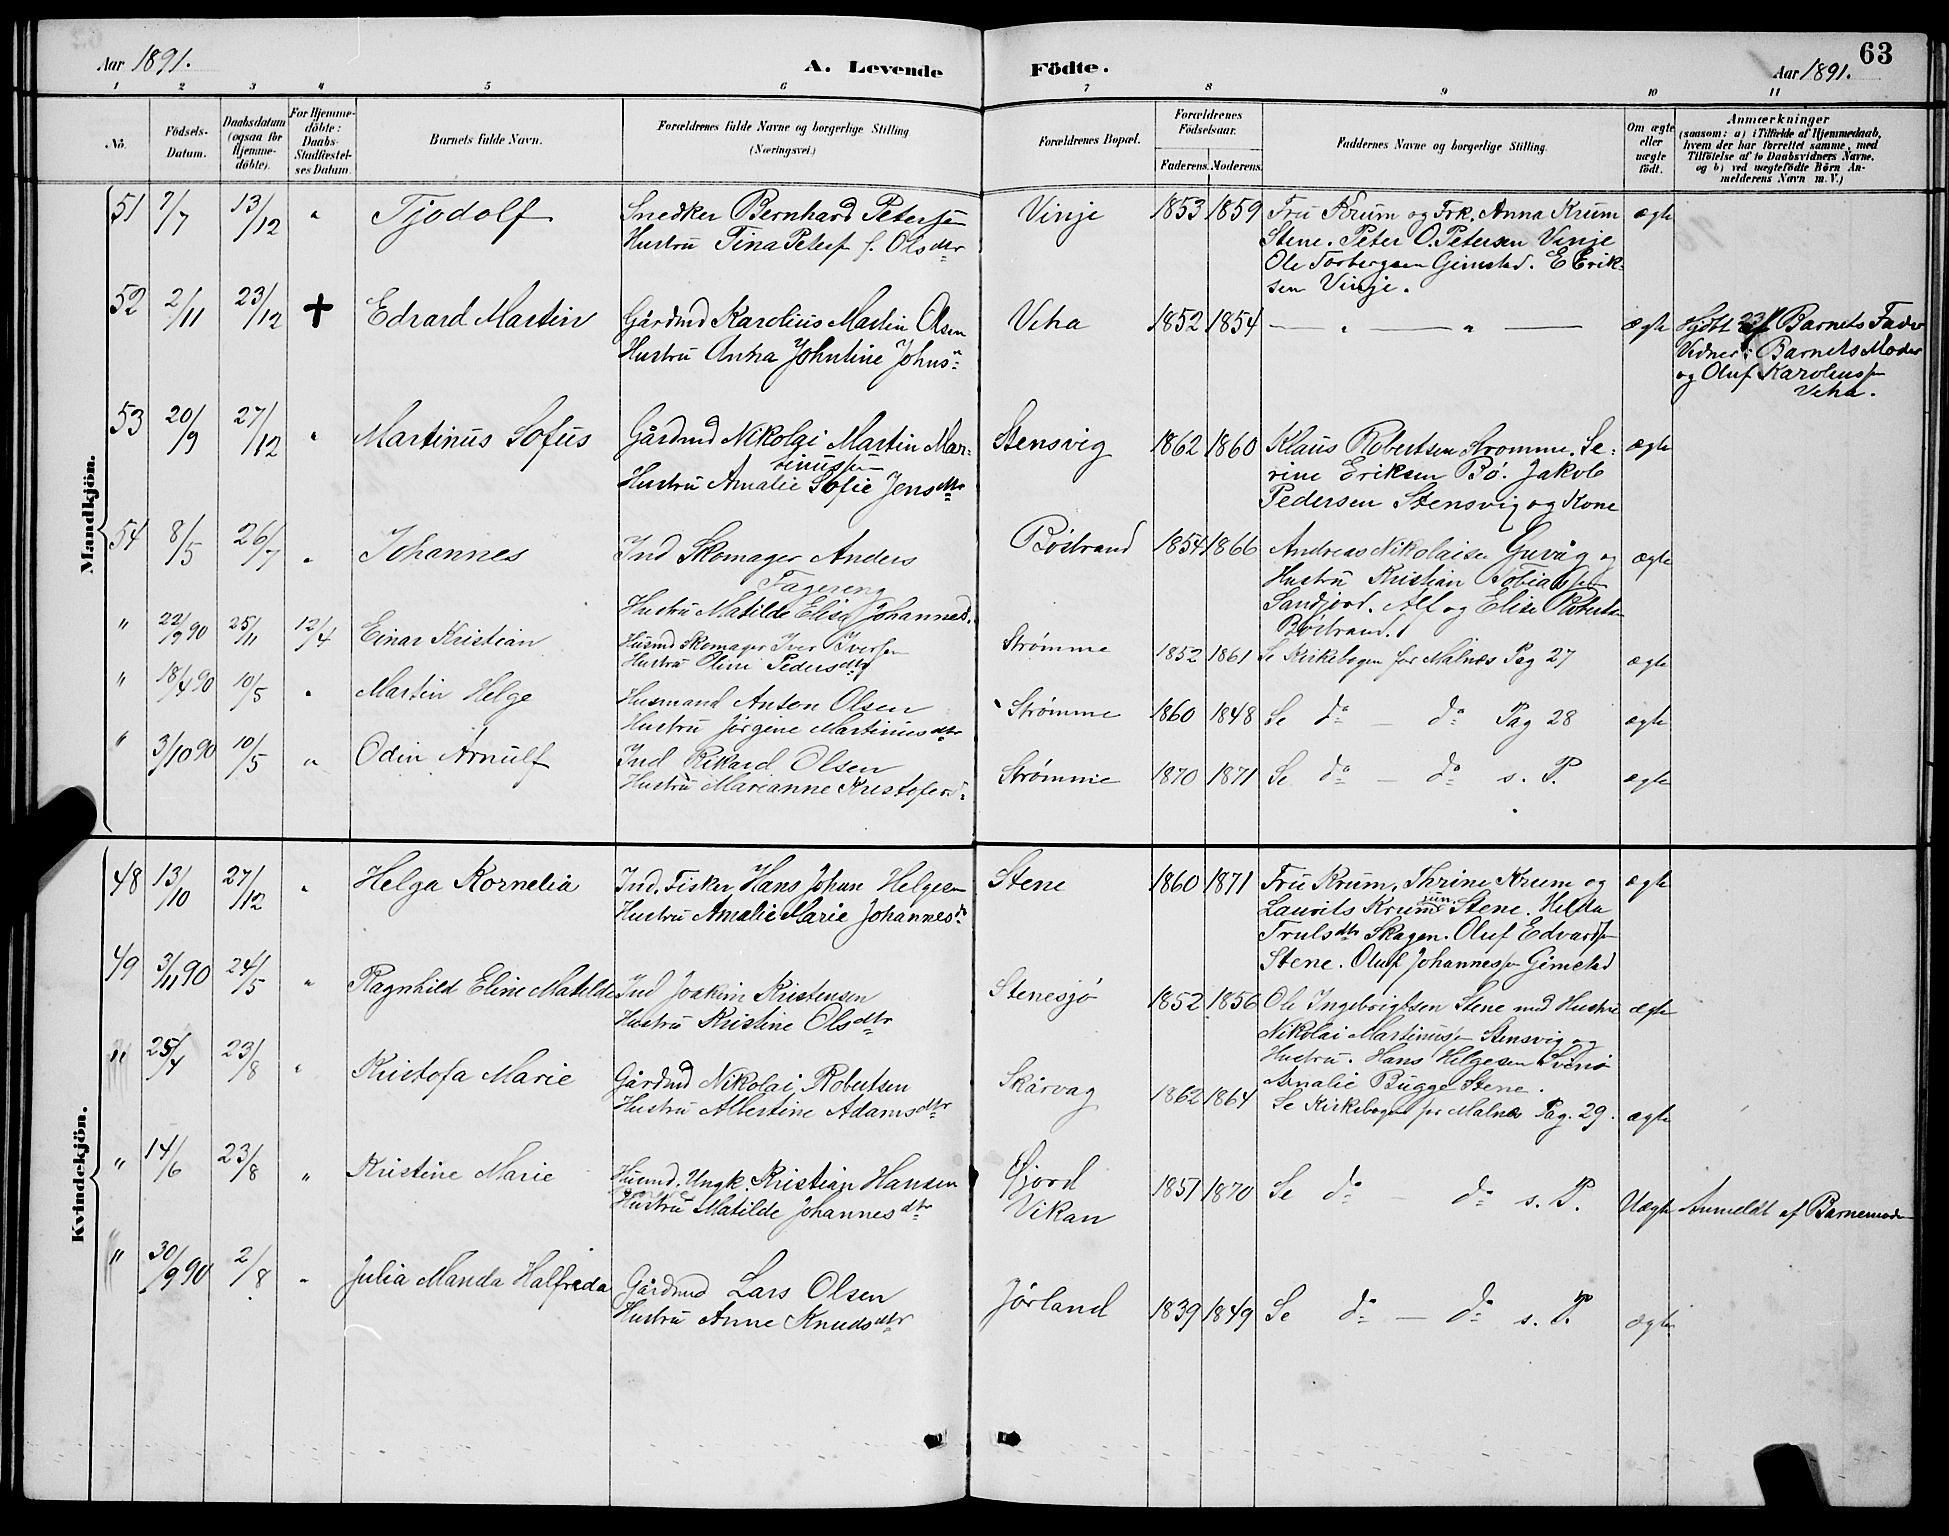 63
Aar 1891.
A. Levende Födte.
Aar 1891.
1 2 3 4 5 6 7 8 9 10 11
No.
Födsels-
Datum.
Daabsdatum
(ogsaa for
Hjemme-
döbte).
For Hjemme-
döbte:
Daabs-
Stadfæstel-
ses Datum.
Barnets fulde Navn.
Forældrenes fulde Navne og borgerlige Stilling
(Næringsvei.)
Forældrenes Bopæl.
Forældrenes
Födselsaar.
Faderens. Moderens.
Faddernes Navne og borgerlige Stilling.
Om ægte
eller
uægte
födt.
Anmærkninger
(saasom: a) i Tilfælde af Hjemmedaab,
hvem der har forrettet samme, med
Tilföielse af to Daabsvidners Navne,
og b) ved uægtefödte Börn An-
melderens Navn m. V.)
Mandkjön.
51 7/7 13/12 " Tjodolf
Snedker Bernhard Petersen
Hustru Tina Peters f. Olsdtr
Vinje 1853 1859
Fru Krum og Frk. Anna Krum
Stene. Peter O. Petersen Vinje
Ole Torbergsen Gimstad. E Erik-
sen Vinje.
ægte
52 2/11 23/12 + Edvard Martin
Gårdmd Karolius Martin Olsen
Hustru Anna Johntine Johns
Veha 1852 1854 — " — " —
ægte
Hjdbt 23/ af Barnets Fader
Vidner: Barnets Moder
og Oluf Karoliuss
Veha.
53 20/9 27/12 " Martinus Sofus
Gårdmd Nikolai Martin Mar-
tinussen
Hustru Amalie Sofie Jensdtr
Stensvig 1862 1860
Klaus Robertsen Strømme. Se-
rine Eriksen Bø. Jakob
Pedersen Stensvig og Kone
ægte
54 8/5 26/7 " Johannes
Ind Skomager Anders
Fagereng
Hustru Matilde Elise Johannesd.
Bøstrand 1854 1866
Andreas Nikolaisen Guvåg og
Hustru Kristian Tobiassen
Sandjord. Alf og Elise Roberts
Bøstrand.
ægte
" 22/9 90 25/11 12/4 Einar Kristian
Husmd Skomager Iver Iversen
Hustru Oline Pedersdtr
Strømme 1852 1861 Se Kirkebogen for Malnes Pag 27 ægte
" 18/4 90 10/5 " Martin Helge
Husmand Anton Olsen
Hustru Jørgine Martinusdtr
Strømme 1860 1848 Se do — do Pag 28 ægte
" 3/10 90 10/5 " Odin Arnulf
Ind Rikard Olsen
Hustru Marianne Kristofersd.
Strømme 1870 1871 Se do — do s. P. ægte
Kvindekjön.
48 13/10 27/12 " Helga Kornelia
Ind. Fisker Hans Johan Helgesen
Hustru Amalie Marie Johannesd.
Stene 1860 1871
Fru Krum, Thrine Krum og
Laurits Krum jun. Stene. Helda
Trulsdtr Skagen. Oluf Edvards
Stene. Oluf Johannessen Gimstad
ægte
49 3/11 90 24/5 " Ragnhild Eline Matilde
Ind Joakim Kristensen
Hustru Kristine Olsdtr
Stenesjø 1852 1856
Ole Ingebrigtsen Stene med Hustru
Nikolai Martinuss Stensvig og
Hustru. Hans Helgesen Svinø
Amalie Bugge Stene.
ægte
" 25/4 23/8 " Kristofa Marie
Gårdmd Nikolai Robertsen
Hustru Albertine Adamsdtr
Skårvag 1862 1864 Se Kirkebogen for Malnes Pag. 29. ægte
" 14/6 23/8 " Kristine Marie
Husmd. Ungk. Kristian Hansen
Hustru Matilde Johannesdtr
Fjord
Vikan
1851 1870 Se do — do s. P. Uægte Anmeldt af Barnemoder
" 30/9 90 2/8 " Julia Manda Halfreda
Gårdmd Lars Olsen
Hustru Anne Knudsdtr
Jørland 1839 1849 Se do — do s. P. ægte